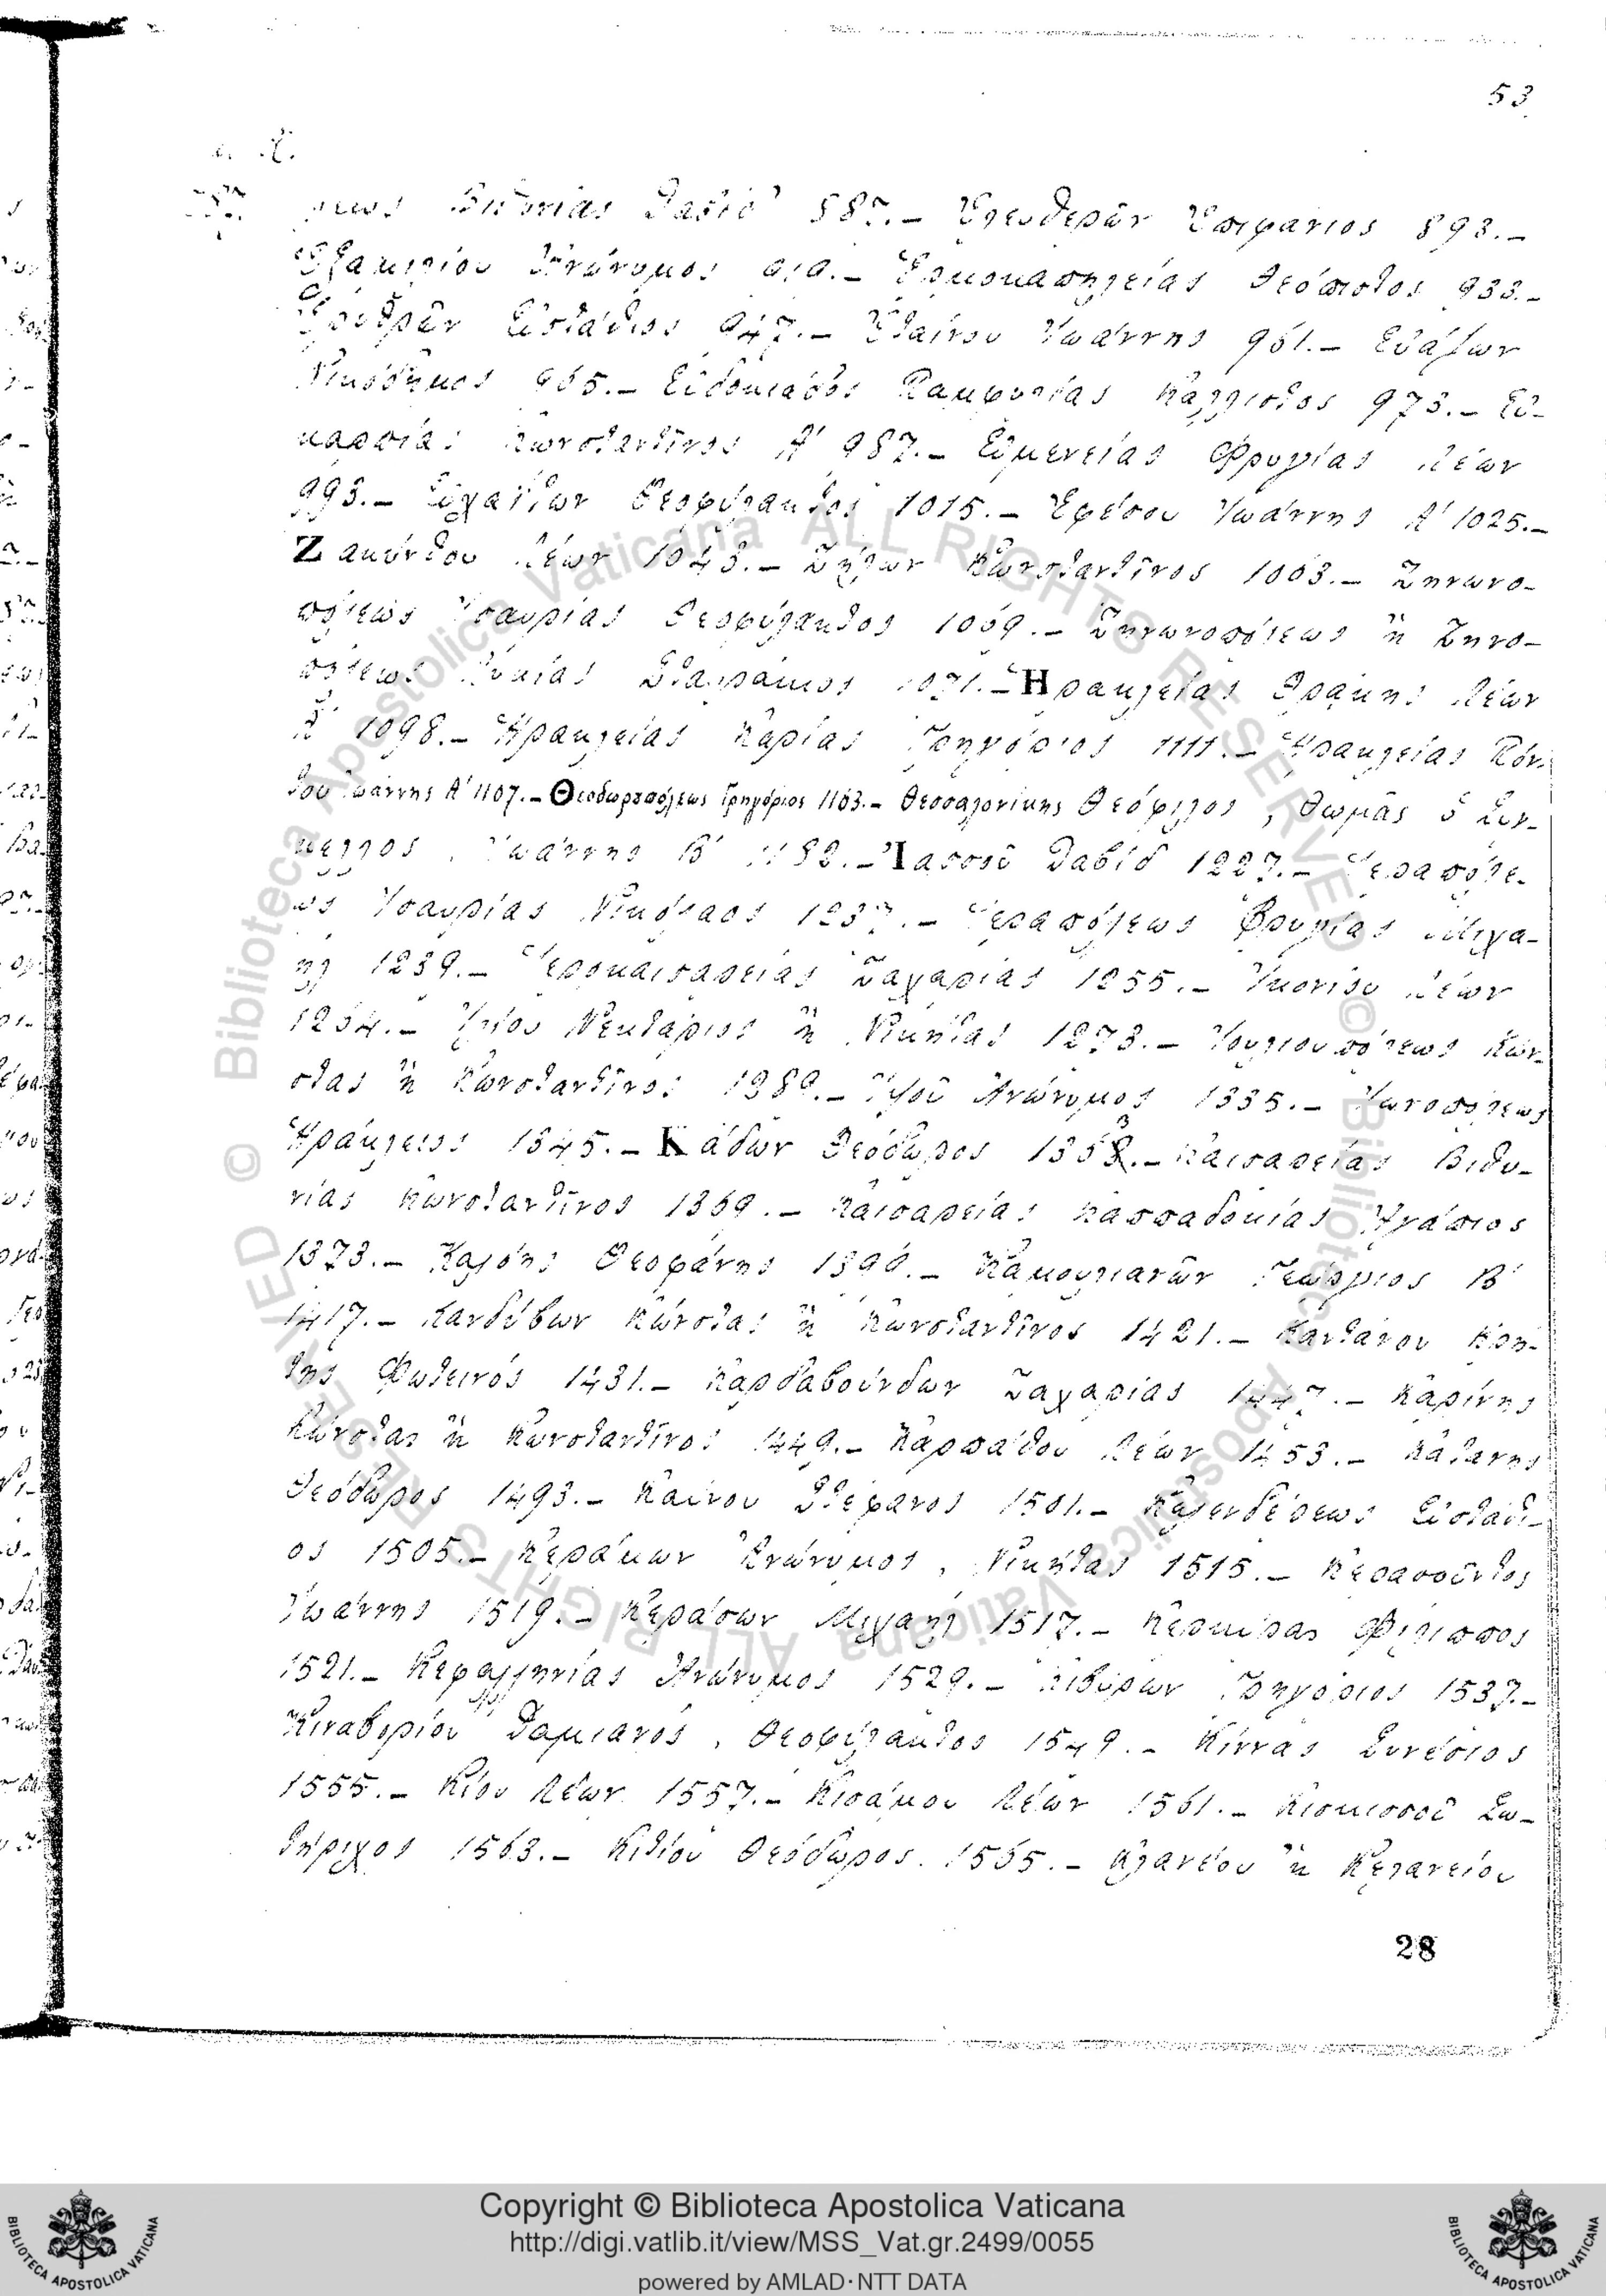 53
λεως Βιθυνίας Δαβίδ 887.– Ἐλευθερῶν Ἐπιφάνιος 893.–
Ἐξακισίου Ἀνώνυμος 919.– Ἑρμοκαπηλείας Θεόπιστος 933.–
Ἐρυθρῶν Εὐστάθιος 947.– Ἐταίνου Ἰωάννης 961.– Εὐάζων
Νικόδημος 965.– Εὐδοκιάδος Παμφυλίας Κάλλιστος 973.– Εὐ–
καρπίας Κωνσταντῖνος Α΄ 987.– Εὐμενείας Φρυγίας Λέων
993.– Εὐχαΐτων Θεοφύλακτος 1015.– Ἐφέσου Ἰωάννης Α΄ 1025.–
Ζακύνθου Λέων 1043.– Ζήλων Κωνσταντῖνος 1063.– Ζηνωνο–
πόλεως Ἰσαυρίας Θεοφύλακτος 1069.– Ζηνωνοπόλεως ἢ Ζηνο–
πόλεως Λυκίας Σταυράκιος 1071.– Ἡρακλείας Θράκης Λέων
1098.– Ἡρακλείας Καρίας Γρηγόριος 1111.– Ἡρακλείας Πόν–
του Ἰωάννης Α΄ 1107.– Θεοδωρουπόλεως Γρηγόριος 1163.– Θεσσαλονίκης Θεόφιλος, Θωμᾶς ὁ Σύγ–
κελλος, Ἰωάννης Β΄ 1182.– Ἰασσοῦ Δαβίδ 1227.– Ἱεραπόλε–
ως Ἰσαυρίας Νικόλαος 1237.– Ἱεραπόλεως Φρυγίας Μιχα–
ὴλ 1239.– Ἱεροκαισαρείας Ζαχαρίας 1255.– Ἰκονίου Λέων
1264.– Ἰλίου Νεκτάριος ἢ Νικήτας 1273.– Ἰουλιουπόλεως Κών–
στας ἢ Κωνσταντῖνος 1289.– Ἰψοῦ Ἀνώνυμος 1335.– Ἰωνοπόλεως
Ἡράκλειος 1345.– Κάδων Θεόδωρος 1353.– Καισαρείας Βιθυ–
νίας Κωνσταντῖνος 1369.– Καισαρείας Καππαδοκίας Ἀγάπιος
1373.– Καλόης Θεοφάνης 1396.– Καμουλιανῶν Γεώργιος Β΄
1417.– Κανδύβων Κώνστας ἢ Κωνσταντῖνος 1421.– Καντάνου Κρή–
της Φωτεινός 1431.– Καρδαβούνδων Ζαχαρίας 1447.– Καρίνης
Κώνστας ἢ Κωνσταντῖνος 1449.– Καρπάθου Λέων 1453.– Κατάνης
Θεόδωρος 1493.– Καΰνου Στέφανος 1501.– Κελενδέρεως Εὐστάθι–
ος 1505.– Κεράμων Ἀνώνυμος, Νικήτας 1515.– Κερασοῦντος
Ἰωάννης 1519.– Κεράσων Μιχαήλ 1517.– Κερκύρας Φίλιππος
1521.– Κεφαλληνίας Ἀνώνυμος 1529.– Κιβύρων Γρηγόριος 1537.–
Κιναβορίου Δαμιανός, Θεοφύλακτος 1549.– Κίννας Συνέσιος
1555.– Κίου Λέων 1557.– Κισάμου Λέων 1561.– Κισκισσοῦ Σω–
τήριχος 1563.– Κιτίου Θεόδωρος 1565.– Κλανέου ἢ Κελανείου
28
© Biblioteca Apostolica Vaticana ALL RIGHTS RESERVED © Biblioteca Apostolica Vaticana ALL RIGHTS RESERVED
Copyright © Biblioteca Apostolica Vaticana
http://digi.vatlib.it/view/MSS_Vat.gr.2499/0055
powered by AMLAD·NTT DATA
BIBLIOTECA APOSTOLICA VATICANA
BIBLIOTECA APOSTOLICA VATICANA